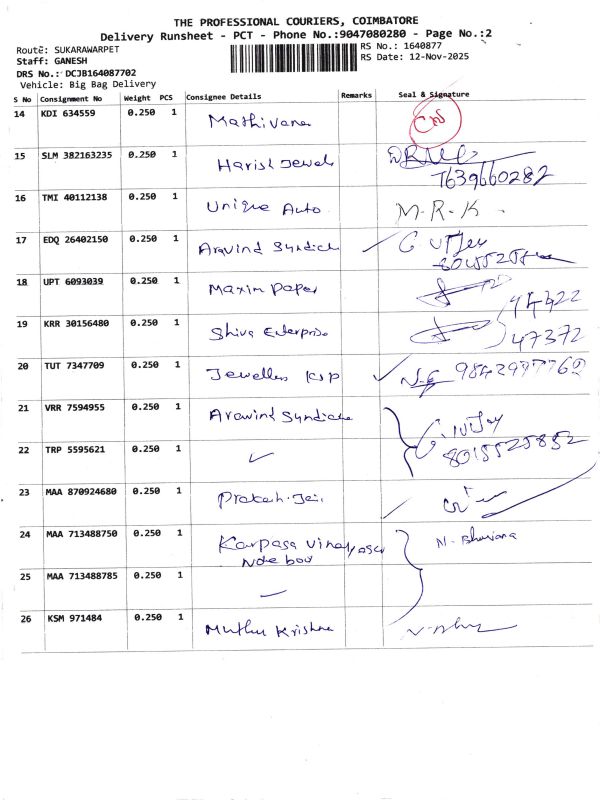 THE PROFESSIONAL COURIERS, COIMBATORE
Delivery Runsheet - PCT - Phone No.:9047080280 - Page No.:2
Route: SUKARAWARPET
RS No.: 1640877
Staff: GANESH
RS Date: 12-Nov-2025
DRS No.: DCJB164087702
Vehicle: Big Bag Delivery
S No Consignment No Weight PCS Consignee Details Remarks Seal & Signature
14 KDI 634559 0.250 1 Mathivana
15 SLM 382163235 0.250 1 Harish Jewels
7639660282
16 TMI 40112138 0.250 1 Unique Auto M.R.K.
17 EDQ 26402150 0.250 1 Aravind Syndicate
18 UPT 6093039 0.250 1 Maxim Paper
19 KRR 30156480 0.250 1 Shiva Enterprise
47372
20 TUT 7347709 0.250 1 Jewellers KSP
21 VRR 7594955 0.250 1 Aravind Syndicate
22 TRP 5595621 0.250 1 8015525852
23 MAA 870924680 0.250 1 Prakash Jain
24 MAA 713488750 0.250 1 Karpaga Vinayagar N. Bhuvana
Note book
25 MAA 713488785 0.250 1
26 KSM 971484 0.250 1 Muthu Krishna